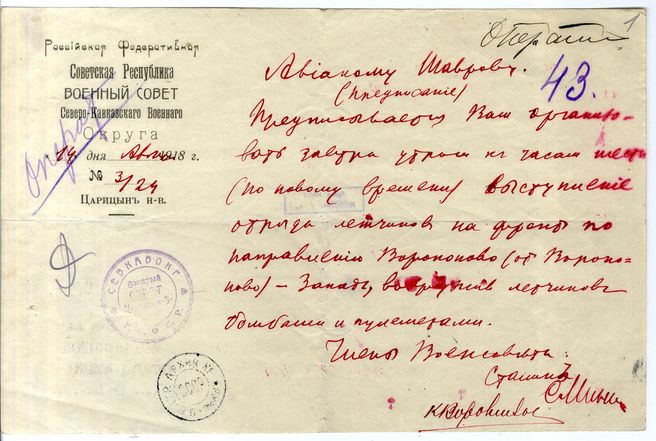 1
Операти
Россійская Федеративная
Советская Республика
ВОЕННЫЙ СОВЕТ
Северо-Кавказскаго Военнаго
Округа
14 дня 1918 г.
№ 3/24
Царицынъ н-в.
Операт
43.
Авіакому Шаврову.
(Предписание)
Предписывается Вам организо-
вать завтра утром к часам шести
(по новому времени) выступление
отряда летчиков на фронт по
направлению Воропоново (от Воропо-
ново) – Запад, вооружив летчиков
бомбами и пулеметами.
Члены Военсовета:
Сталинъ
С Минин
К Ворошилов
СЕВКАВОКР
Военный